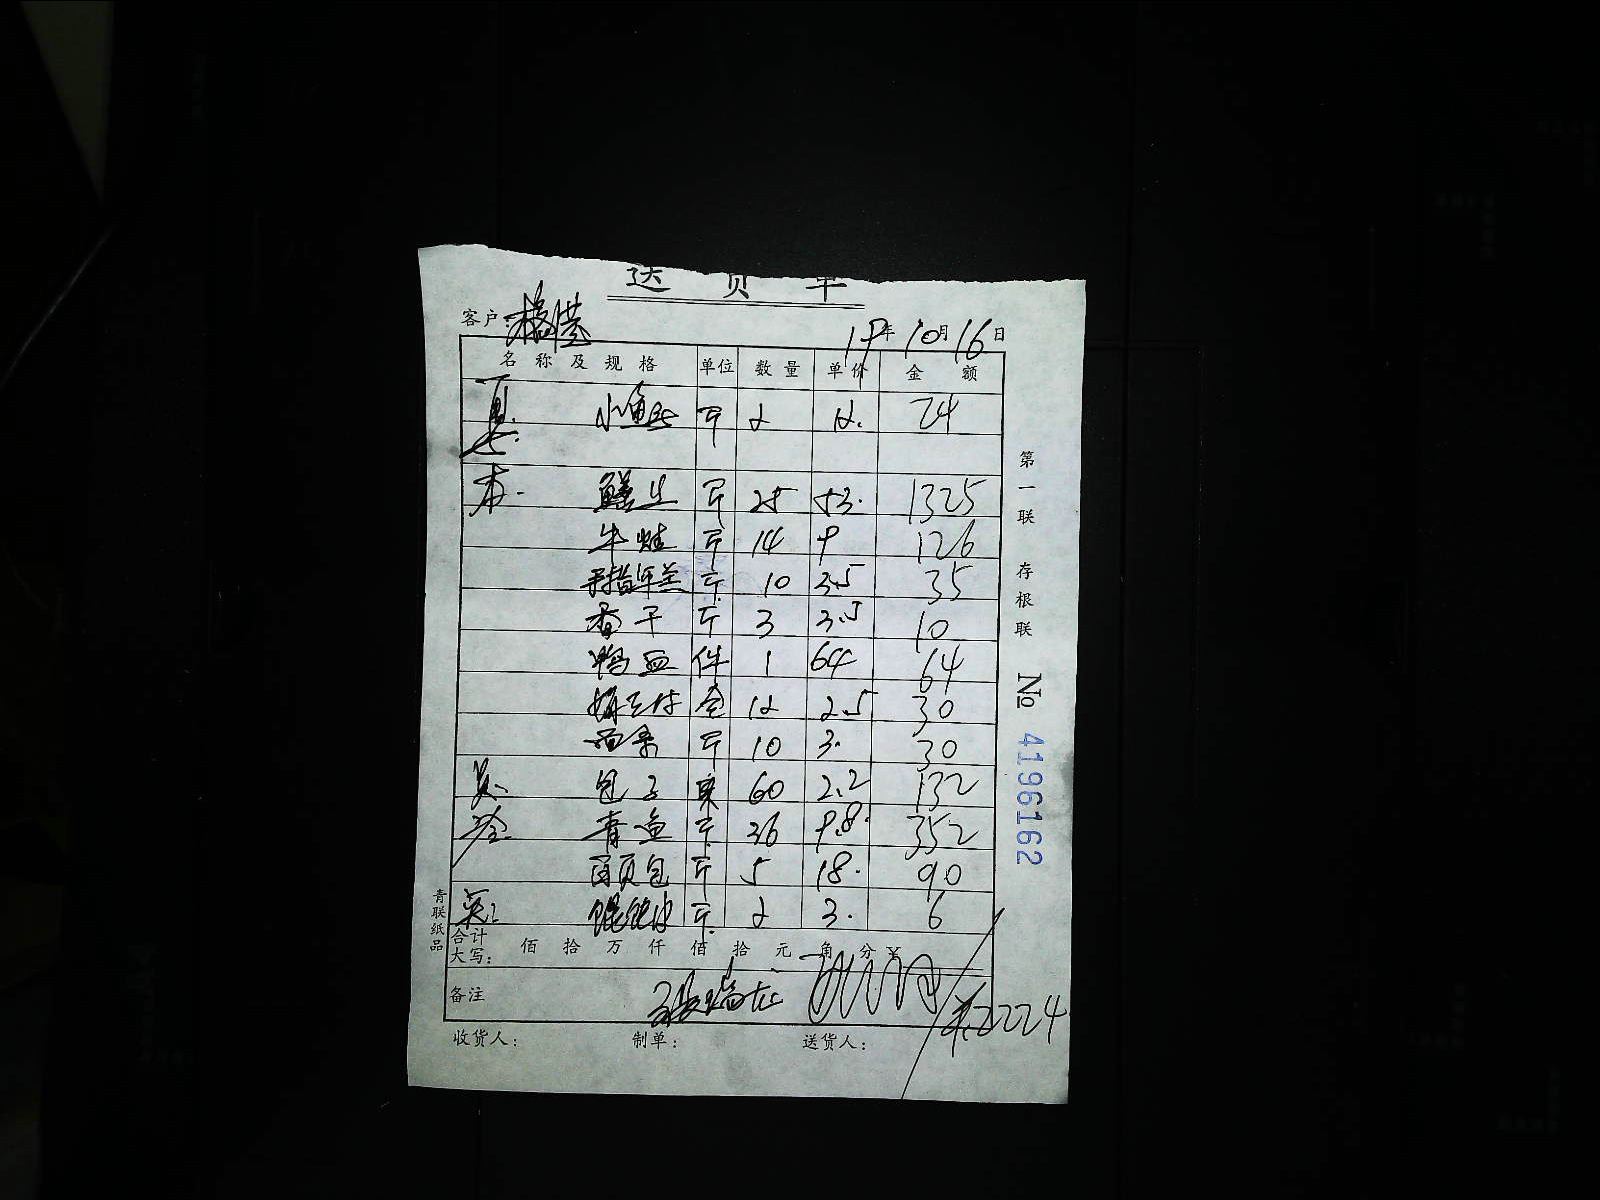 送货单
客户:
19年10月16日
名称及规格 单位 数量 单价 金额
小鱼 斤 2 12. 24
斤 25 53. 1325
牛蛙 斤 14 9 126
斤 10 3.5 35
香干 斤 3 3.5 10
鸭血 件 1 64 64
12 2.5 30
斤 10 3. 30
包子 60 2.2 132
青鱼 斤 36 9.8 352
百页包 斤 5 18. 90
馄饨皮 斤 2 3. 6
合计
大写: 佰拾万仟佰拾元角分¥
2224
备注
收货人: 制单: 送货人:
第一联 存根联
No 4196162
青联纸品